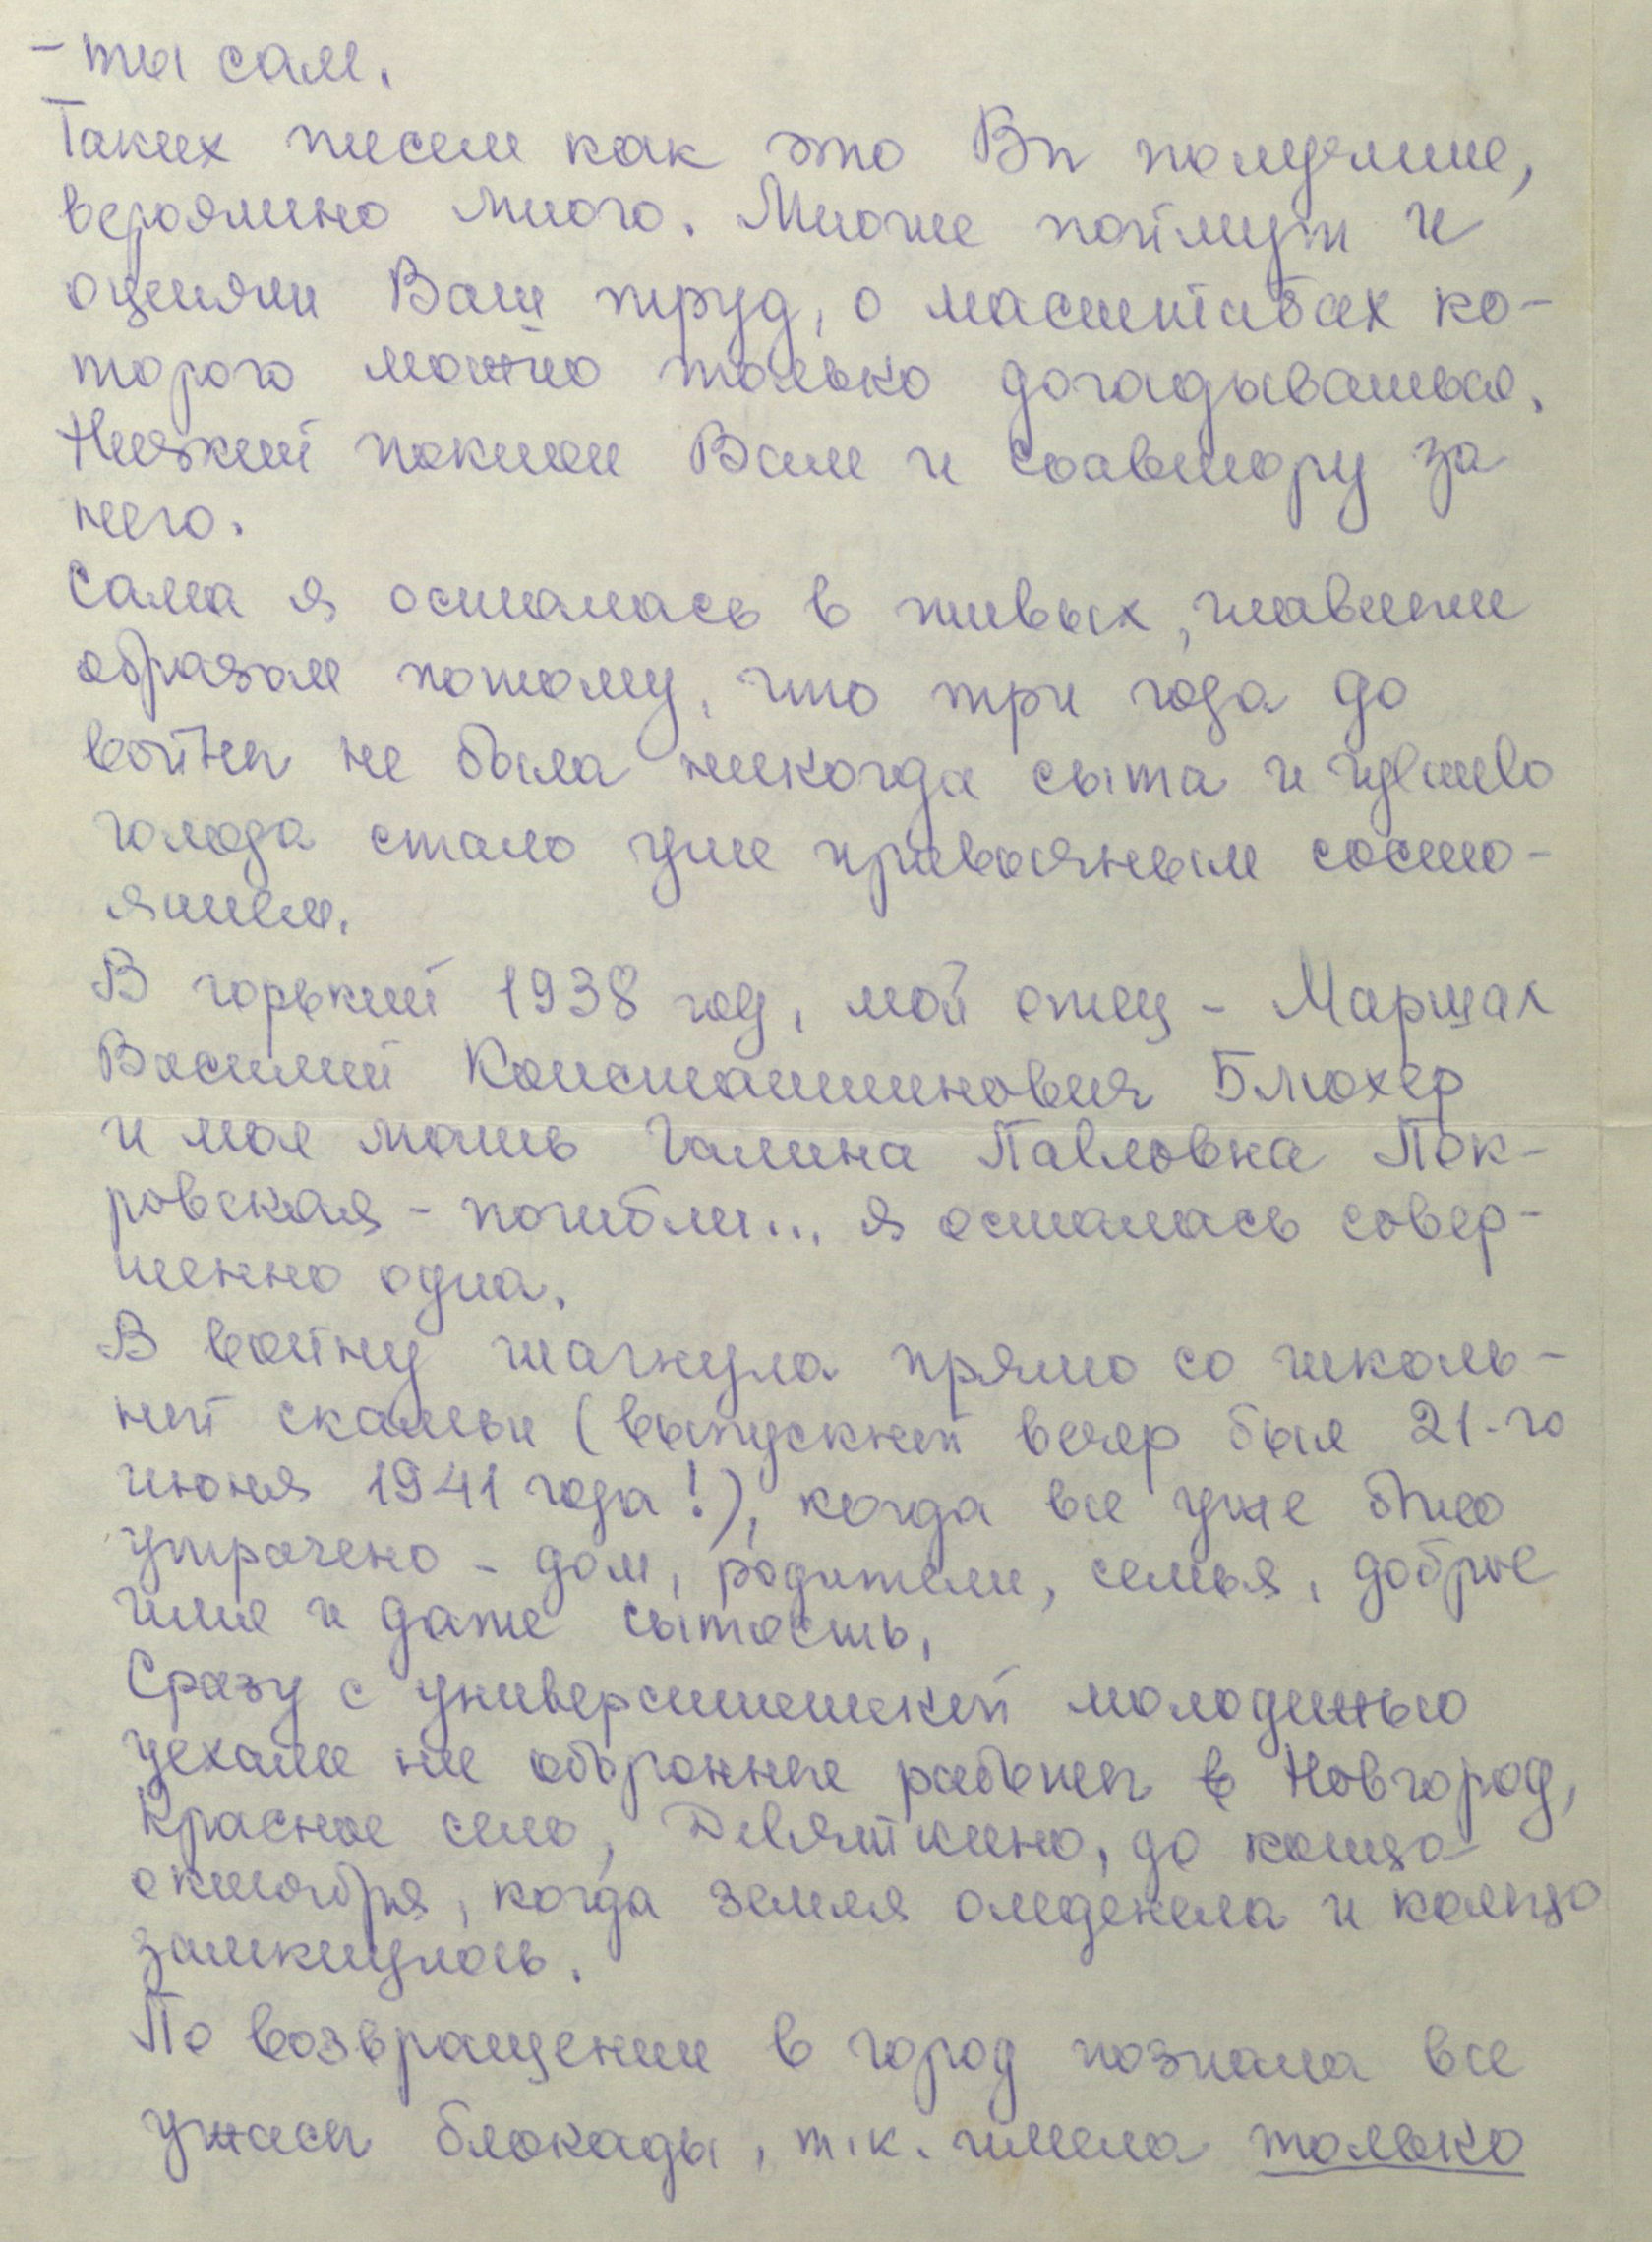 - ты сам.
Таких писем как это Вы получили,
вероятно много. Многие поймут и
оценят Ваш труд, о масштабах ко-
торого можно только догадываться.
Низкий поклон Вам и соавтору за
него.
Сама я осталась в живых, главным
образом потому, что три года до
войны не была никогда сыта и чувство
голода стало уже привычным состо-
янием.
В горький 1938 год, мой отец - Маршал
Василий Константинович Блюхер
и моя мать Галина Павловна Пок-
ровская - погибли... я осталась совер-
шенно одна.
В войну шагнула прямо со школь-
ной скамьи (выпускной вечер был 21-го
июня 1941 года!), когда все уже было
утрачено - дом, родители, семья, доброе
имя и даже сытость.
Сразу с университетской молодежью
уехали на оборонные работы в Новгород,
Красное село, Девяткино, до конца
октября, когда земля оледенела и кольцо
замкнулось.
По возвращении в город познала все
ужасы блокады, т.к. имела только